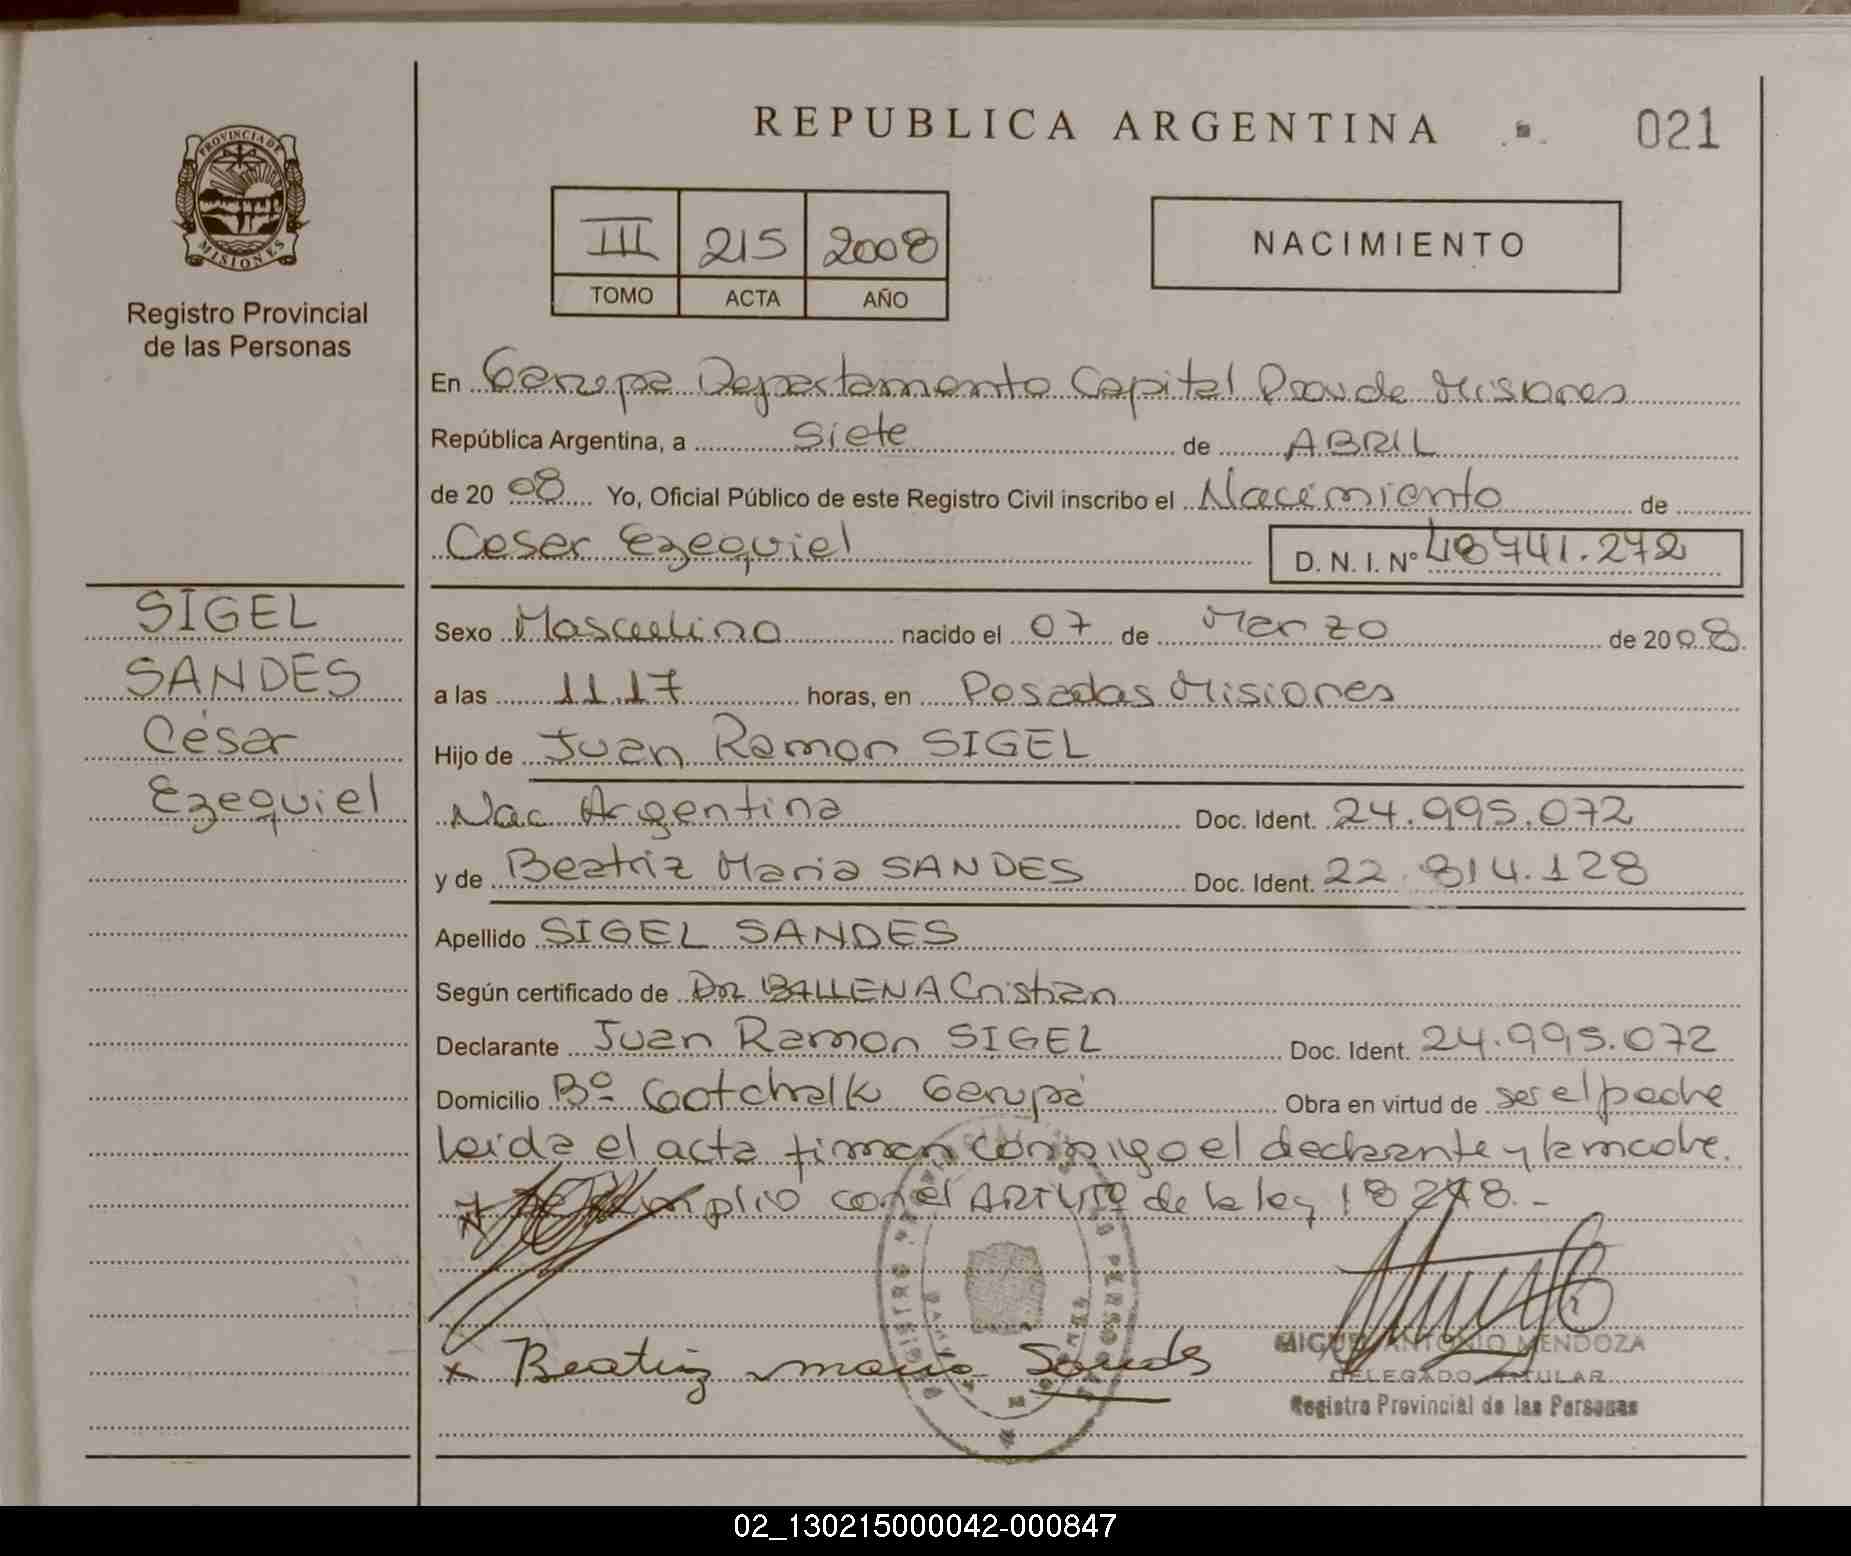 REPUBLICA ARGENTINA
021
PROVINCIA DE
MISIONES
Registro Provincial
de las Personas
III 215 2008
TOMO ACTA AÑO
NACIMIENTO
En Garupa Departamento Capital Prov de Misiones
República Argentina, a siete de ABRIL
de 20 08 Yo, Oficial Público de este Registro Civil inscribo el Nacimiento de
Cesar Ezequiel D. N. I. N° 48741.272
SIGEL
SANDES
César
Ezequiel
Sexo Masculino nacido el 07 de Marzo de 2008.
a las 11.17 horas, en Posadas Misiones
Hijo de Juan Ramon SIGEL
Nac Argentina Doc. Ident. 24.995.072
y de Beatriz Maria SANDES Doc. Ident. 22.814.128
Apellido SIGEL SANDES
Según certificado de Dr BALLENA Cristian
Declarante Juan Ramon SIGEL Doc. Ident. 24.995.072
Domicilio Bº Gotchalk Garupá Obra en virtud de ser el padre
leida el acta firman conmigo el declarante y la madre.
cumplio con el ART de la ley 18248.-
x Beatriz maria Sandes
MIGUEL ANTONIO MENDOZA
DELEGADO TITULAR
Registro Provincial de las Personas
02_130215000042-000847